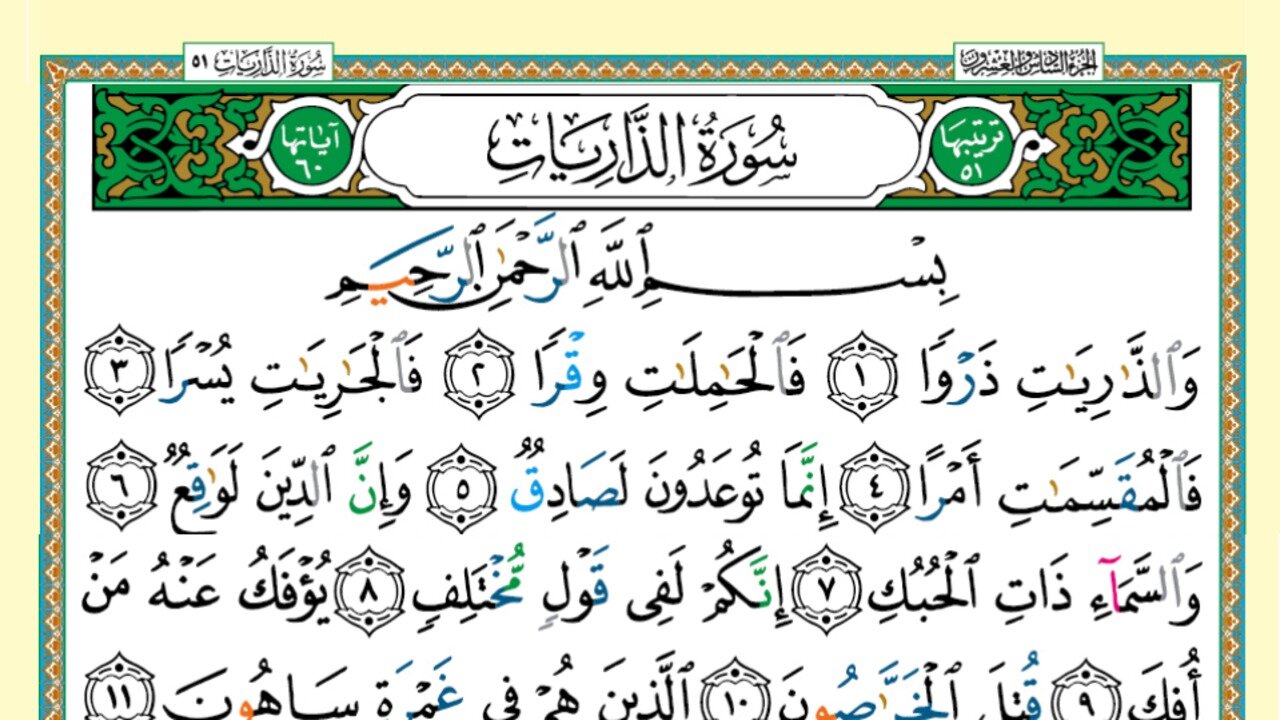 الجزء السادس والعشرون
سورة الذاريات ٥١
ترتيبها ٥١
سُورَةُ الذَّارِيَاتِ
آياتها ٦٠
بِسْمِ ٱللَّهِ ٱلرَّحْمَٰنِ ٱلرَّحِيمِ
وَٱلذَّٰرِيَٰتِ ذَرْوًا ١ فَٱلْحَٰمِلَٰتِ وِقْرًا ٢ فَٱلْجَٰرِيَٰتِ يُسْرًا ٣
فَٱلْمُقَسِّمَٰتِ أَمْرًا ٤ إِنَّمَا تُوعَدُونَ لَصَادِقٌ ٥ وَإِنَّ ٱلدِّينَ لَوَٰقِعٌ ٦
وَٱلسَّمَآءِ ذَاتِ ٱلْحُبُكِ ٧ إِنَّكُمْ لَفِى قَوْلٍ مُّخْتَلِفٍ ٨ يُؤْفَكُ عَنْهُ مَنْ
أُفِكَ ٩ قُتِلَ ٱلْخَرَّٰصُونَ ١٠ ٱلَّذِينَ هُمْ فِى غَمْرَةٍ سَاهُونَ ١١